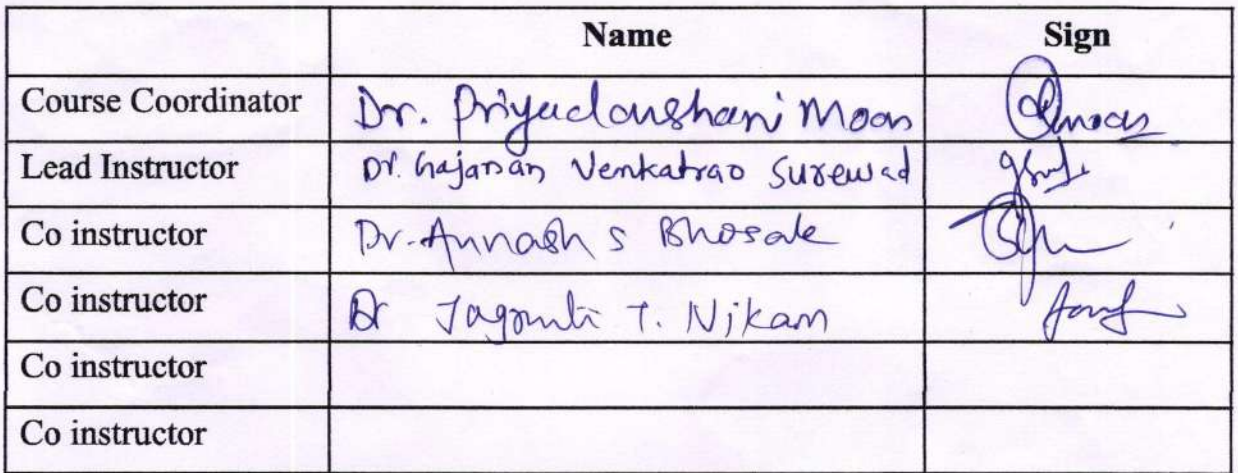 Name Sign
Course Coordinator Dr. Priyadarshani Moon
Lead Instructor Dr. Gajanan Venkatrao Surewad
Co instructor Dr. S Bhosale
Co instructor Dr T. Nikam
Co instructor
Co instructor